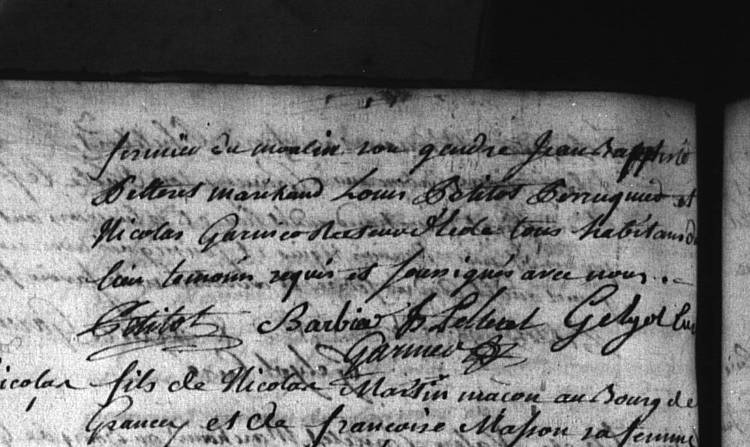 fermier du moulin son gendre Jean Baptiste
Pelleret marchand Louis Petitot Perruquier et
Nicolas Garnier Recteur d'école tous habitans du
lieu temoins requis et soussignés avec nous . .
Petitot Barbier J Pelleret Gelyot Curé
Garnier
Nicolas fils de Nicolas Martin maçon au Bourg de
Grancey et de françoise Masson sa femme